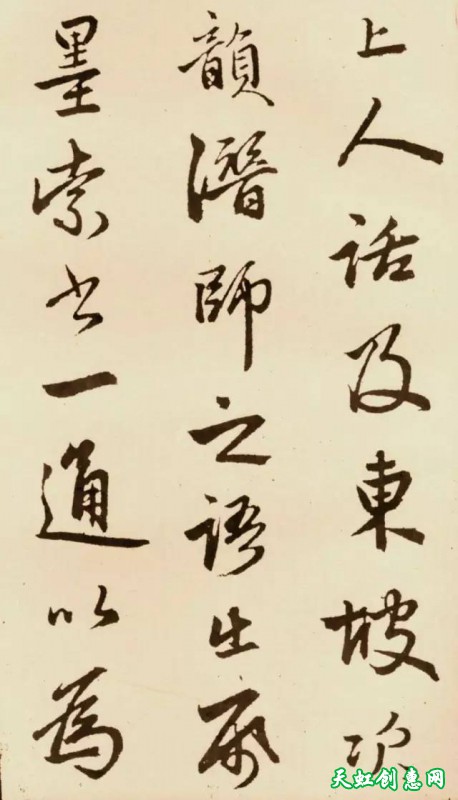 上人話及東坡次
韻潛師之語出帋
墨索書一通以為
天虹创惠网